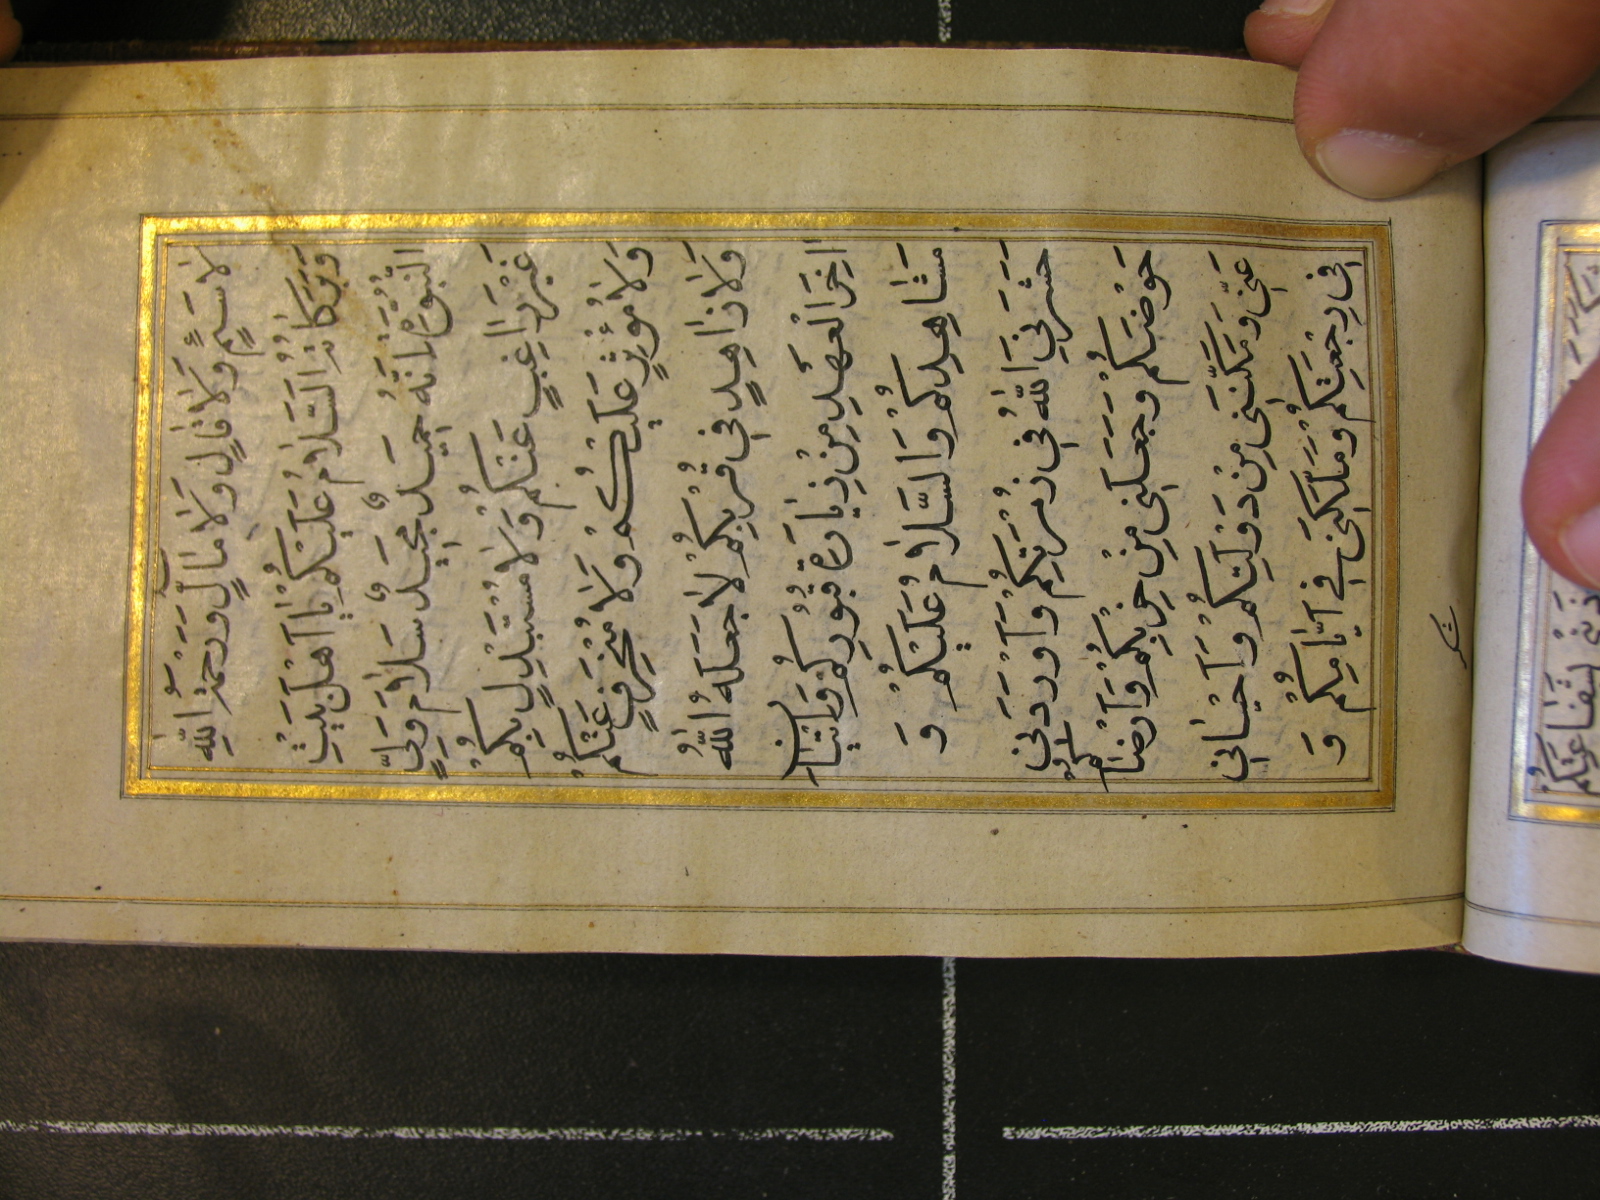 لَا سَئِمٍ وَلَا قَالٍ وَلَا مَالٍّ وَرَحْمَةُ اللهِ
وَبَرَكَاتُهُ اَلسَّلَامُ عَلَيْكُمْ يَا اَهْلَ بَيْتِ
النُّبُوَّةِ اِنَّهُ حَمِيدٌ مَجِيدٌ سَلَامَ وَلِيٍّ
غَيْرِ رَاغِبٍ عَنْكُمْ وَلَا مُسْتَبْدِلٍ بِكُمْ
وَلَا مُؤْثِرٍ عَلَيْكُمْ وَلَا مُنْحَرِفٍ عَنْكُمْ
وَلَا زَاهِدٍ فِي قُرْبِكُمْ لَا جَعَلَهُ اللهُ
اٰخِرَ الْعَهْدِ مِنْ زِيَارَةِ قُبُورِكُمْ وَاِتْيَانِ
مَشَاهِدِكُمْ وَالسَّلَامُ عَلَيْكُمْ وَ
حَشَرَنِيَ اللهُ فِي زُمْرَتِكُمْ وَاَوْرَدَنِي
حَوْضَكُمْ وَجَعَلَنِي مِنْ حِزْبِكُمْ وَاَرْضَاكُمْ
عَنِّي وَمَكَّنَنِي مِنْ دَوْلَتِكُمْ وَاَحْيَانِي
فِي رَجْعَتِكُمْ وَمَلَّكَنِي فِي اَيَّامِكُمْ وَ
شكر
بِشَفَاعَتِكُمْ